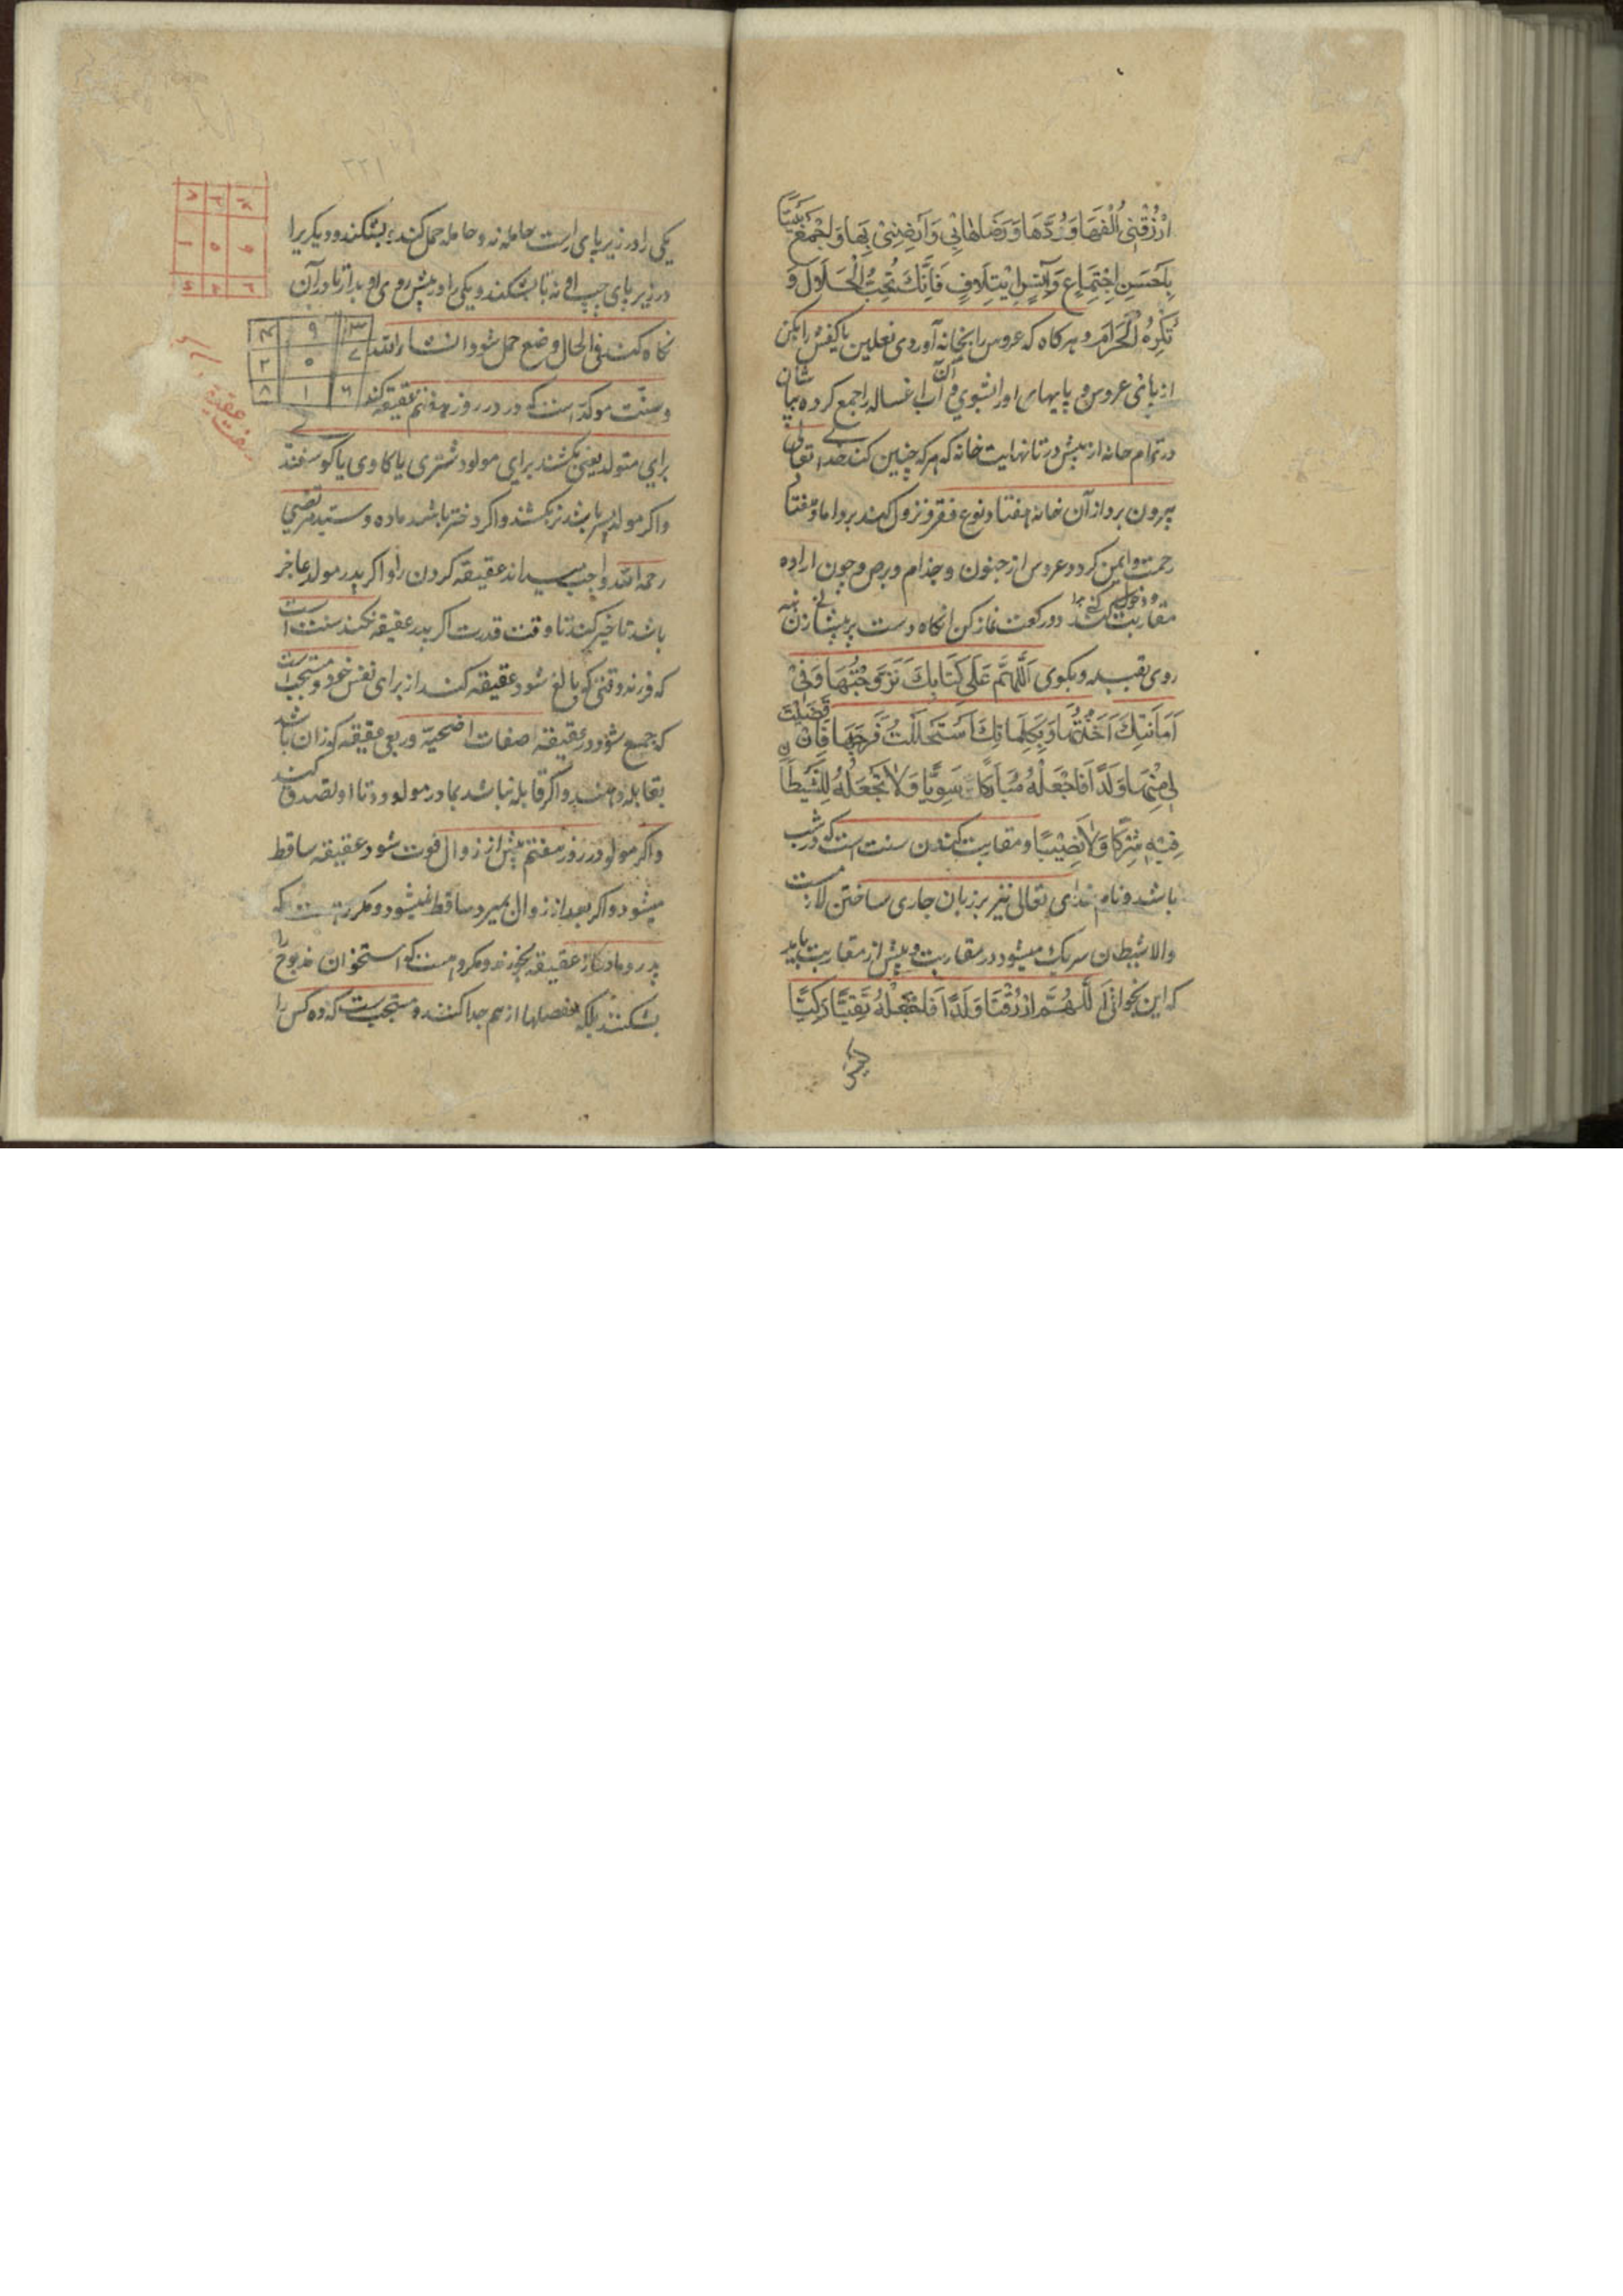 ارْزُقْنِی اُلْفَهَا وَ وُدَّهَا وَ رِضَاهَا بِی وَ اَرْضِنِی بِهَا وَ اجْمَعْ بَیْنَنَا
بِاَحْسَنِ اجْتِمَاعٍ وَ آنَسِ ایْتِلَافٍ فَاِنَّكَ تُحِبُّ الْحَلَالَ وَ
تُكْرِهُ الْحَرَامَ و هر كاه كه عروس را بخانه آوردی نعلین یا كفش را بكن
از پای عروس و پایهای او را بشوی و آن آب غساله را جمع كرده بپاشان
در تمام خانه از پیش در تا نهایت خانه كه هر كه چنین كند خدای تعالی
بیرون برد از آن خانه هفتاد نوع فقر و نزول كند برو اما و هفتاد
رحمت و ایمن كردد عروس از جنون و جذام و برص و چون اراده
مقاربت كنی دو ركعت نماز كن انكاه دست بر پیشانی زن نه
روی بقبله و بكوی اَللّٰهُمَّ عَلَی كِتَابِكَ تَزَوَّجْتُهَا وَ فِی
اَمَانَتِكَ اَخَذْتُهَا وَ بِكَلِمَاتِكَ اسْتَحْلَلْتُ فَرْجَهَا فَاِنْ قَضَیْتَ
لِی مِنْهَا وَلَدًا فَاجْعَلْهُ مُبَارَكًا سَوِیًّا وَ لَا تَجْعَلْهُ لِلشَّیْطَانِ
فِیْهِ شِرْكًا وَ لَا نَصِیْبًا و مقاربت كردن سنت است كه در شب
باشد و نام خدای تعالی نیز بر زبان جاری ساختن لازمست
و الا شیطان شریك میشود در مقاربت و پیش از مقاربت باید
كه این بخوانی اَللّٰهُمَّ ارْزُقْنَا وَلَدًا فَاجْعَلْهُ تَقِیًّا زَكِیًّا
۲۲۱
یكی را در زیر پای راست حامله نه و حامله حمل كننده بشكند و دیكری را
در زیر پای چپ او نه تا بشكند و یكی را در پیش روی او بدار تا در آن
نكاه كند فی الحال وضع حمل شود ان شاء الله
۴ ۹ ۳
۲ ۵ ۷
۸ ۱ ۶
و سنت موكد است كه در روز هفتم عقیقه كند
برای متولد یعنی بكشند برای مولود شتری یا كاوی یا كوسفند
و اكر مولد پسر باشد نر بكشند و اكر دختر باشد ماده و سید مرتضی
رحمه الله واجب میداند عقیقه كردن را و اكر پدر مولد عاجز
باشد تاخیر كند تا وقت قدرت اكر پدر عقیقه نكند سنت است
كه فرزند وقتی كه بالغ شود عقیقه كند از برای نفس خود و مستحب است
كه جمع شود در عقیقه صفات اضحیه و ربعی عقیقه كه ران باشد
بقابله دهند و اكر قابله نباشد بمادر مولود دهد تا او تصدق كند
و اكر مولود در روز هفتم پیش از زوال فوت شود عقیقه ساقط
میشود و اكر بعد از زوال بمیرد ساقط نمیشود و مكروهست كه
پدر و مادر از عقیقه بخورند و مكروهست كه استخوان مذبوح را
بشكنند بلكه مفصلها از هم جدا كنند و مستحب است كه ده كس را